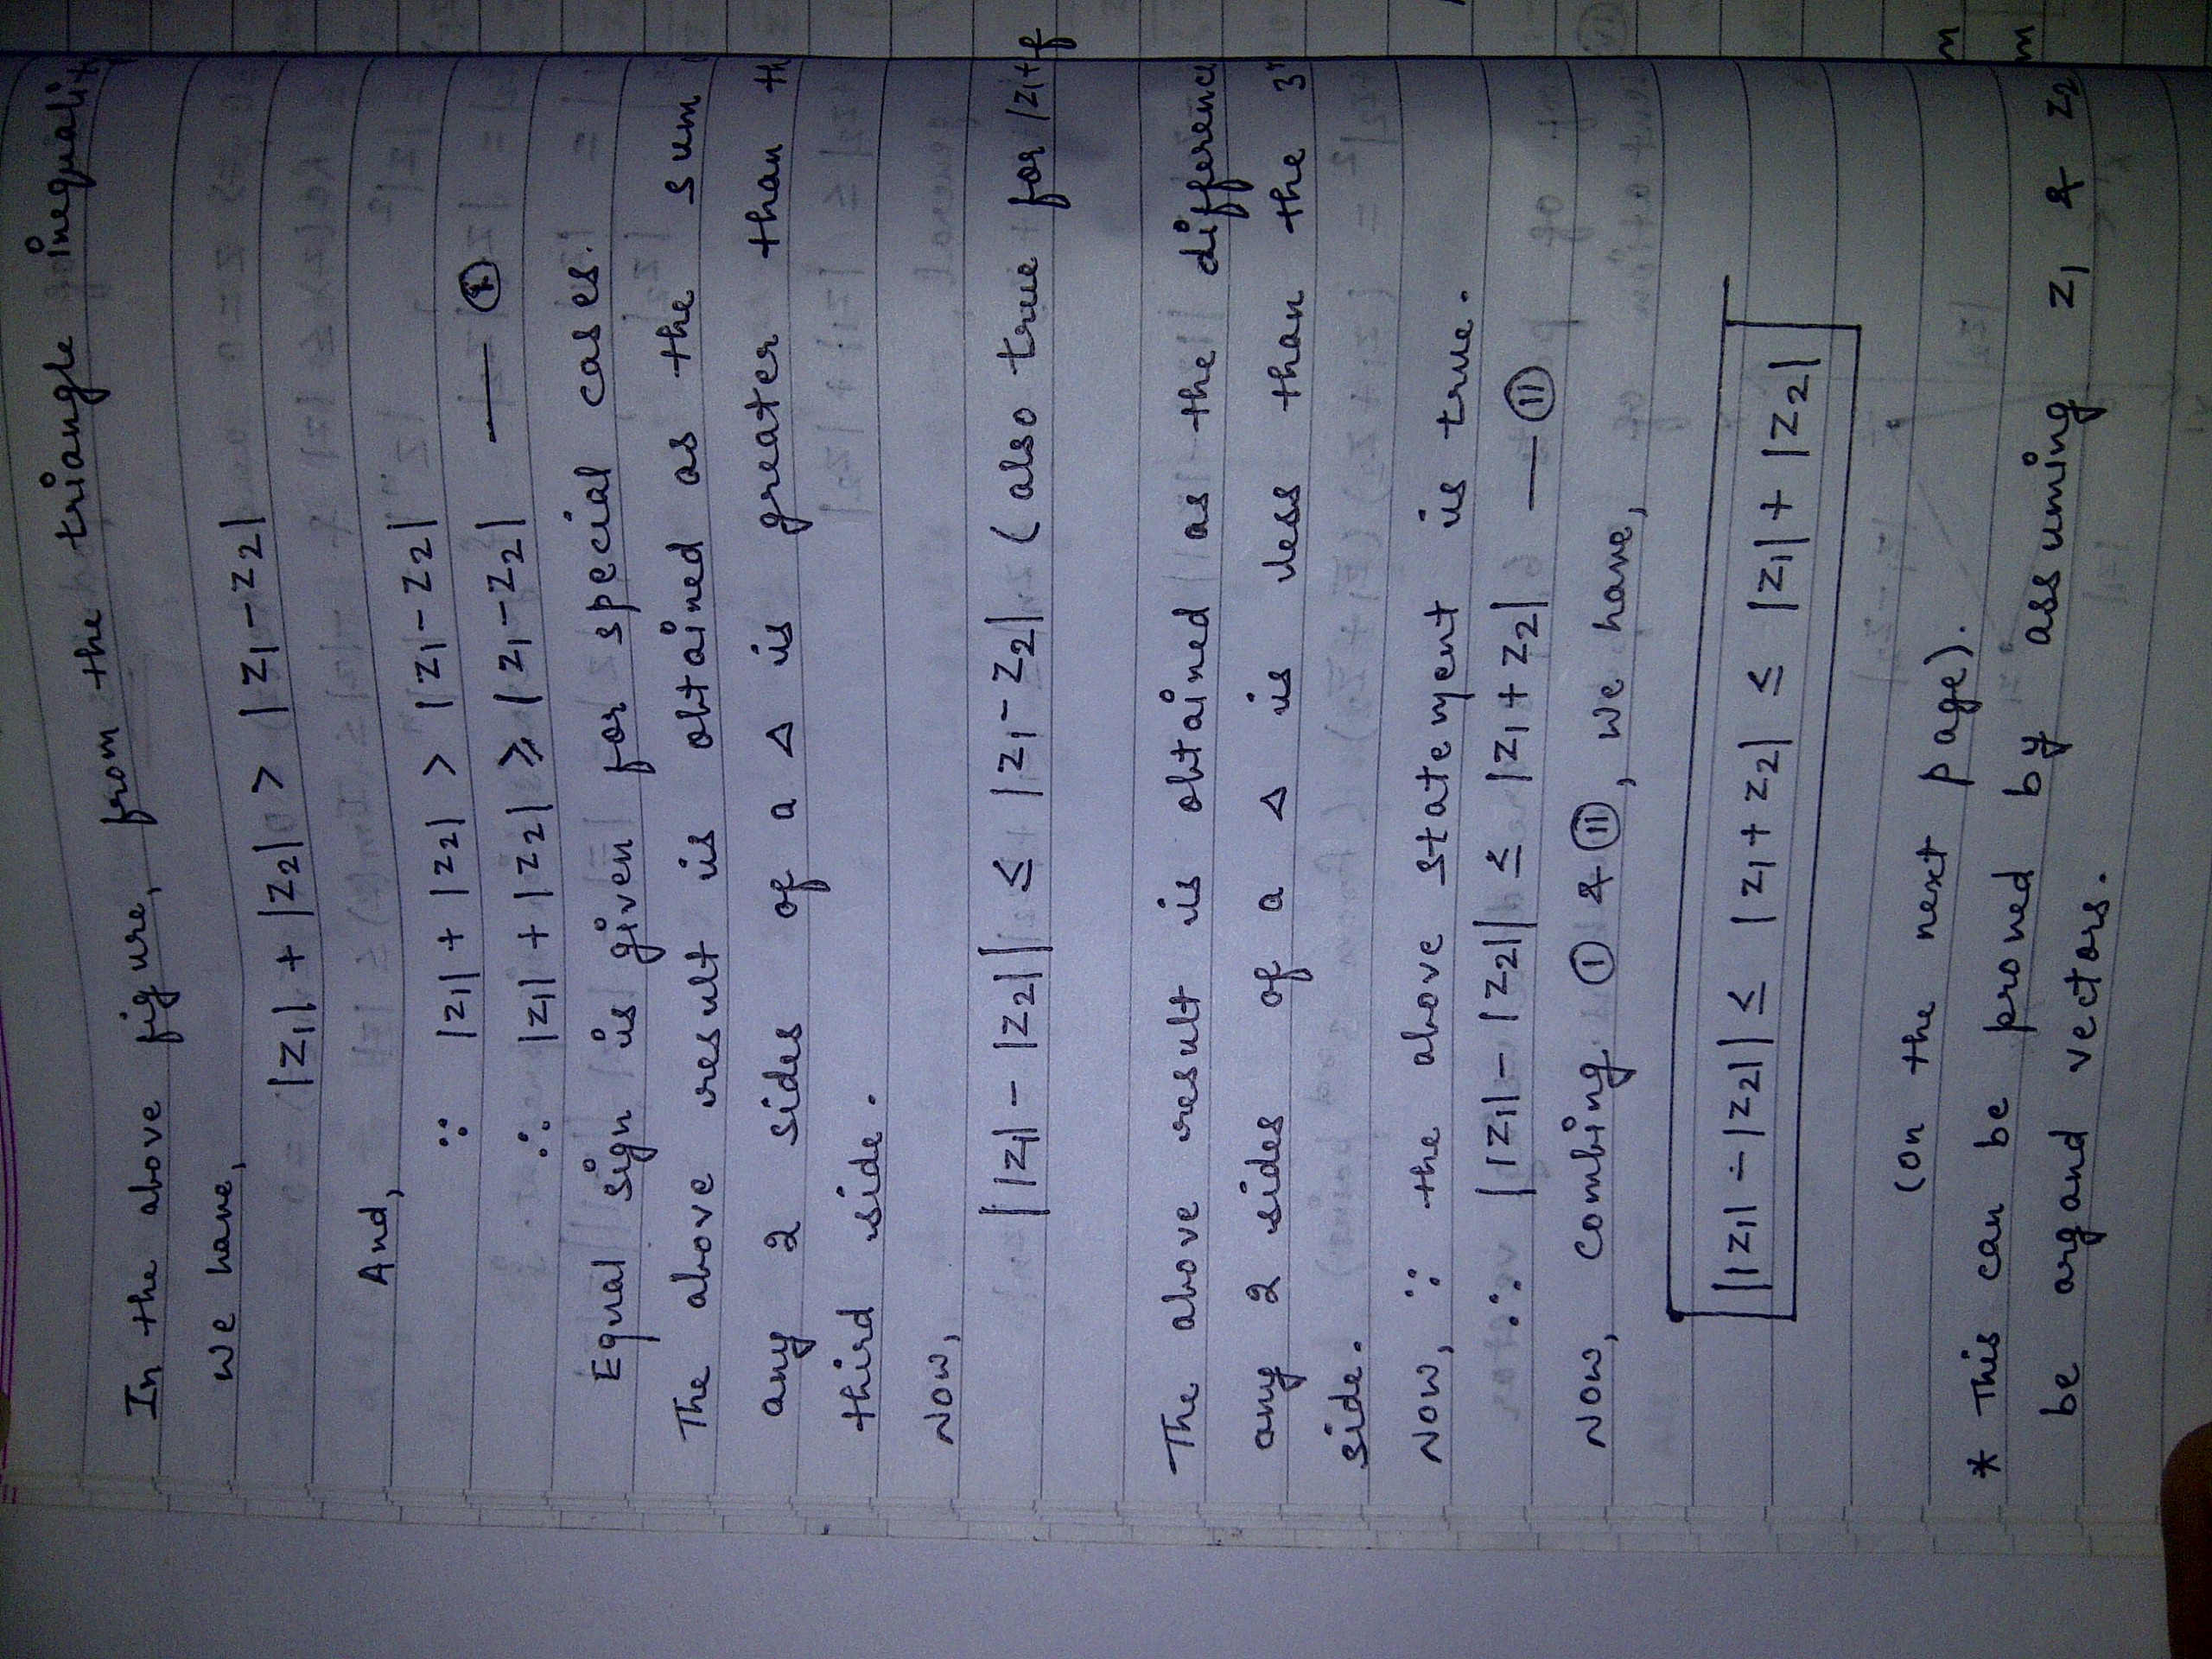 In the above figure, from the triangle inequalit
we have,
|z₁| + |z₂| > |z₁-z₂|
And,
∵ |z₁| + |z₂| > |z₁-z₂|
∴ |z₁| + |z₂| ≥ |z₁-z₂| — Ⓘ
Equal sign is given for special cases.
The above result is obtained as the sum
any 2 sides of a Δ is greater than th
third side.
Now,
||z₁| - |z₂|| ≤ |z₁-z₂| (also true for |z₁+
The above result is obtained as the difference
any 2 sides of a Δ is less than the 3
side.
Now, ∵ the above statement is true.
∴ ||z₁| - |z₂|| ≤ |z₁+z₂| — (II)
Now, combing Ⓘ & (II), we have,
||z₁| - |z₂|| ≤ |z₁+z₂| ≤ |z₁| + |z₂|
(on the next page).
* This can be proved by assuming z₁ & z₂
be argand vectors.